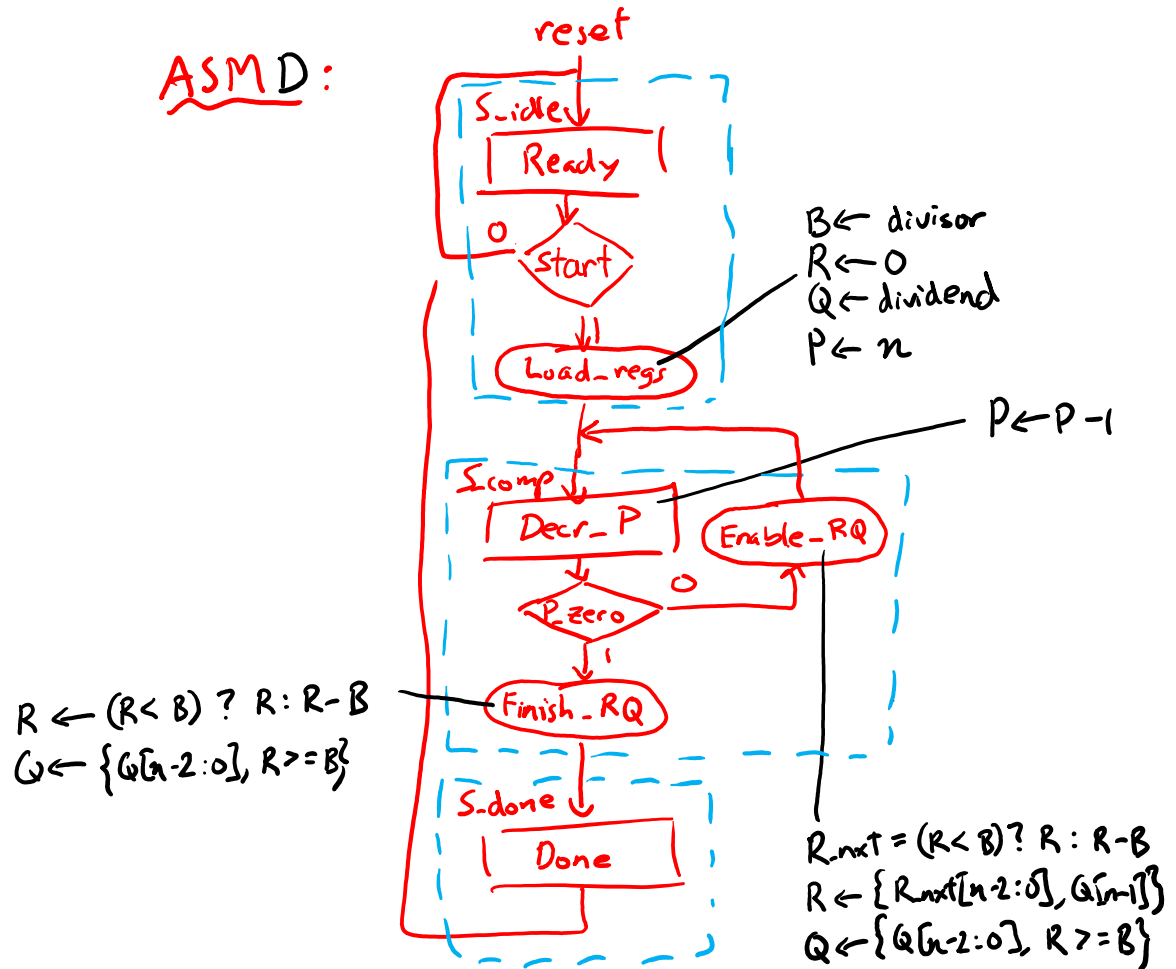 reset
ASMD:
S_idle
Ready
0
start
1
Load_regs
B ← divisor
R ← 0
Q ← dividend
P ← n
P ← P -1
S_comp
Decr_P
Enable_RQ
0
P_zero
1
Finish_RQ
R ← (R < B) ? R : R-B
Q ← {Q[n-2:0], R >= B}
S_done
Done
R_nxt = (R < B) ? R : R-B
R ← {R_nxt[n-2:0], Q[n-1]}
Q ← {Q[n-2:0], R >= B}